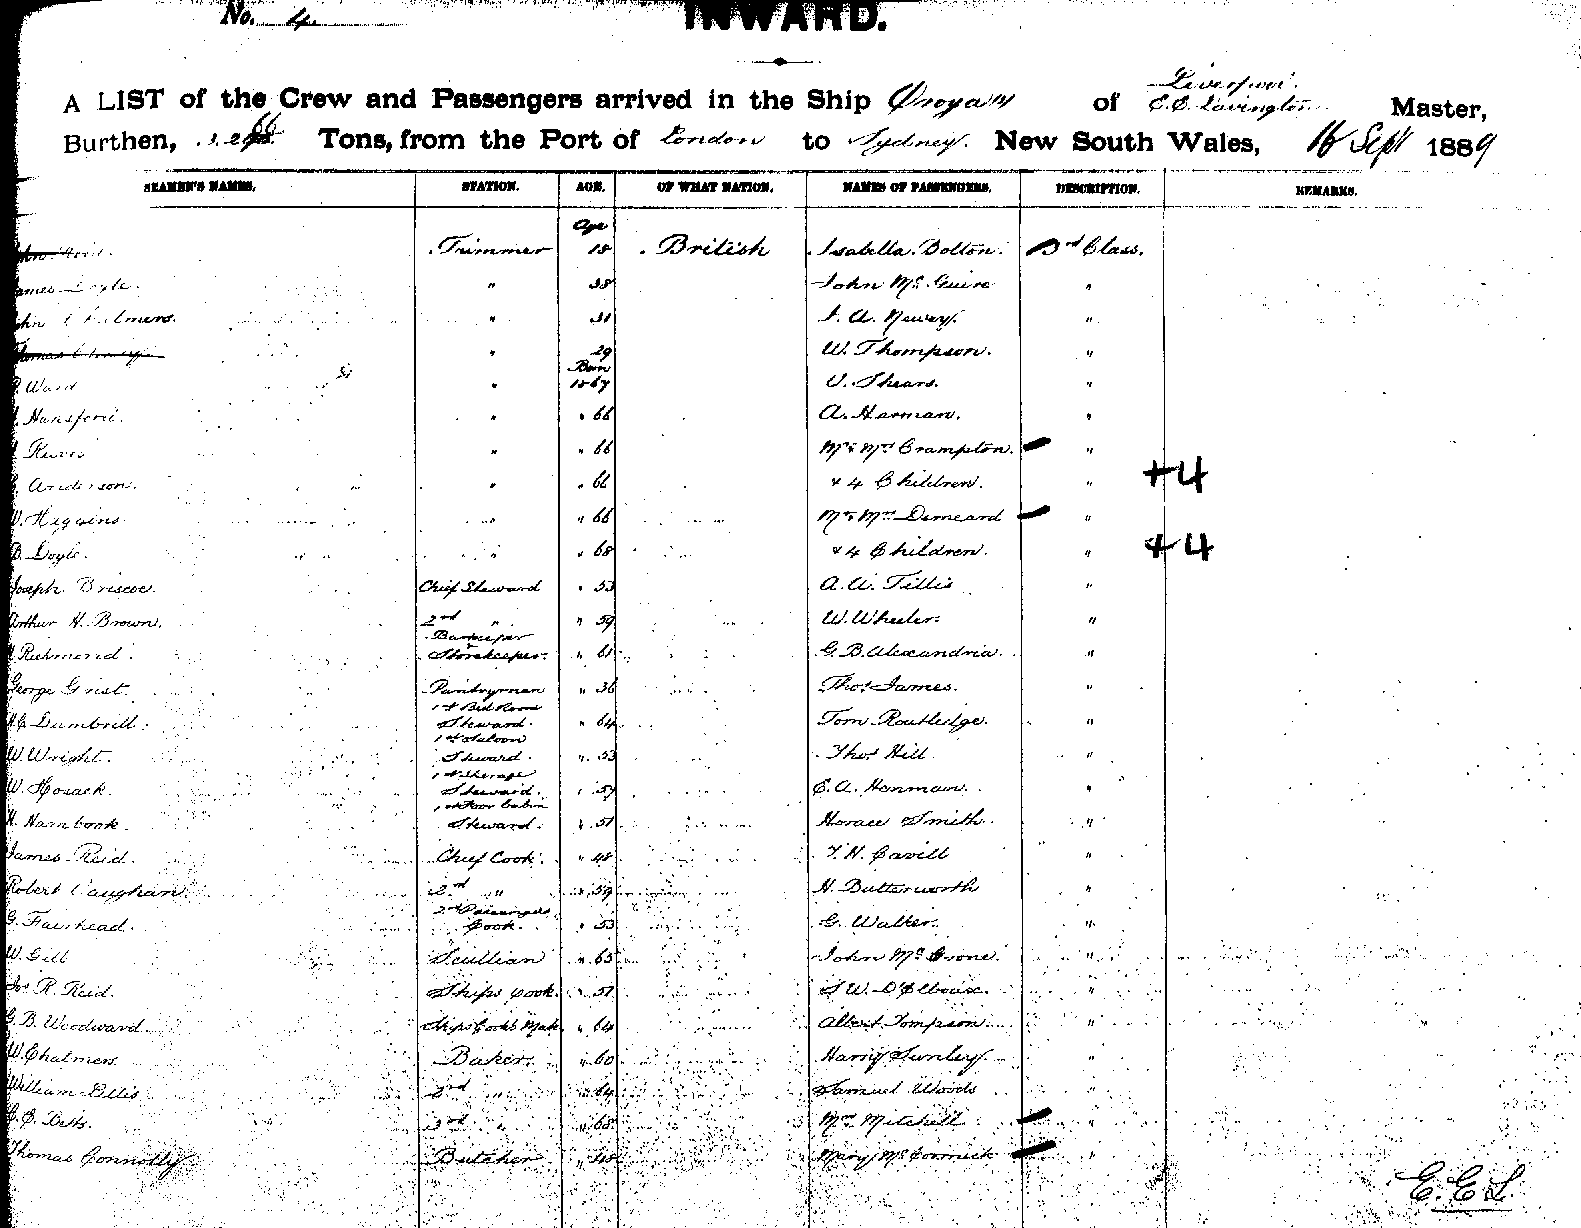 No. 4.
INWARD.
Liverpool.
A LIST of the Crew and Passengers arrived in the Ship Oroya of E.C. Lavington Master,
Burthen, Tons, from the Port of London to Sydney. New South Wales, 16 Sept 1889
SEAMEN'S NAMES. STATION. AGE. OF WHAT NATION. NAMES OF PASSENGERS. DESCRIPTION. REMARKS.
Age
Trimmer 18 British Isabella Bolton. 3rd Class.
James Doyle. " 38 John McGuire "
John Chalmers. " 31 Newey. "
Thomas " 29 W. Thompson. "
Born
Ward " 1867 Shears. "
Hansford. " " 66 A. Harman. "
" " 66 Mr & Mrs Crampton. "
Anderson. " " 66 + 4 Children. " +4
W. Higgins " " 66 Mr & Mrs Dimeard "
B. Doyle. " " 68 + 4 Children. " +4
Joseph Briscoe. Chief Steward " 53 A. W. Tillis "
Arthur H. Brown. 2nd " " 59 W. Wheeler. "
Barkeeper
Richmond. Storekeeper. " 61 G. B. Alexandria. "
George Grist. Pantryman " 36 Thos. James. "
1st Bed Room
Dumbrill. Steward. " 64 Tom Routledge. "
1st Saloon
W. Wright. Steward. " 53 Thos. Hill "
1st Steerage
W. Hosack. Steward. " 57 E. A. Henman. "
1st Fore Cabin
H. Harnbook. Steward. " 51 Horace Smith. "
James Reid. Chief Cook. " 48 T. H. Cavill "
Robert Vaughan. 2nd " " 59 H. Butterworth "
2nd Passengers
G. Fairhead. Cook. " 53 G. Walker. "
W. Gill Scullian " 65 John McCrone. "
Jos. R. Reid. Ships Cook. " 51 "
G. B. Woodward. Ships Cooks Mate " 64 Albert Tompson. "
W. Chalmers. Baker. " 60 Harry Sunley "
William Lillis 2nd " " 64 Samuel Woods "
Betts. 3rd " " 68 Mrs Mitchell "
Thomas Connolly Butcher " Mary McCormick "
E.C.L.